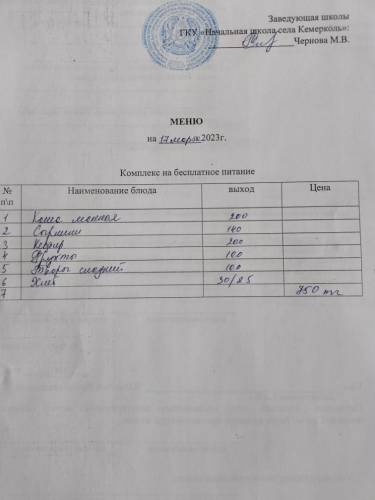 Заведующая школы
ГКУ «Начальная школа села Кемерколь»:
Чернова М.В.
МЕНЮ
на 17 март 2023г.
Комплекс на бесплатное питание
№ п\п Наименование блюда выход Цена
1 Каша манная 200
2 Сырники 140
3 Кефир 200
4 Фрукты 100
5 Творог сладкий 100
6 Хлеб 30/25
7 750 тг